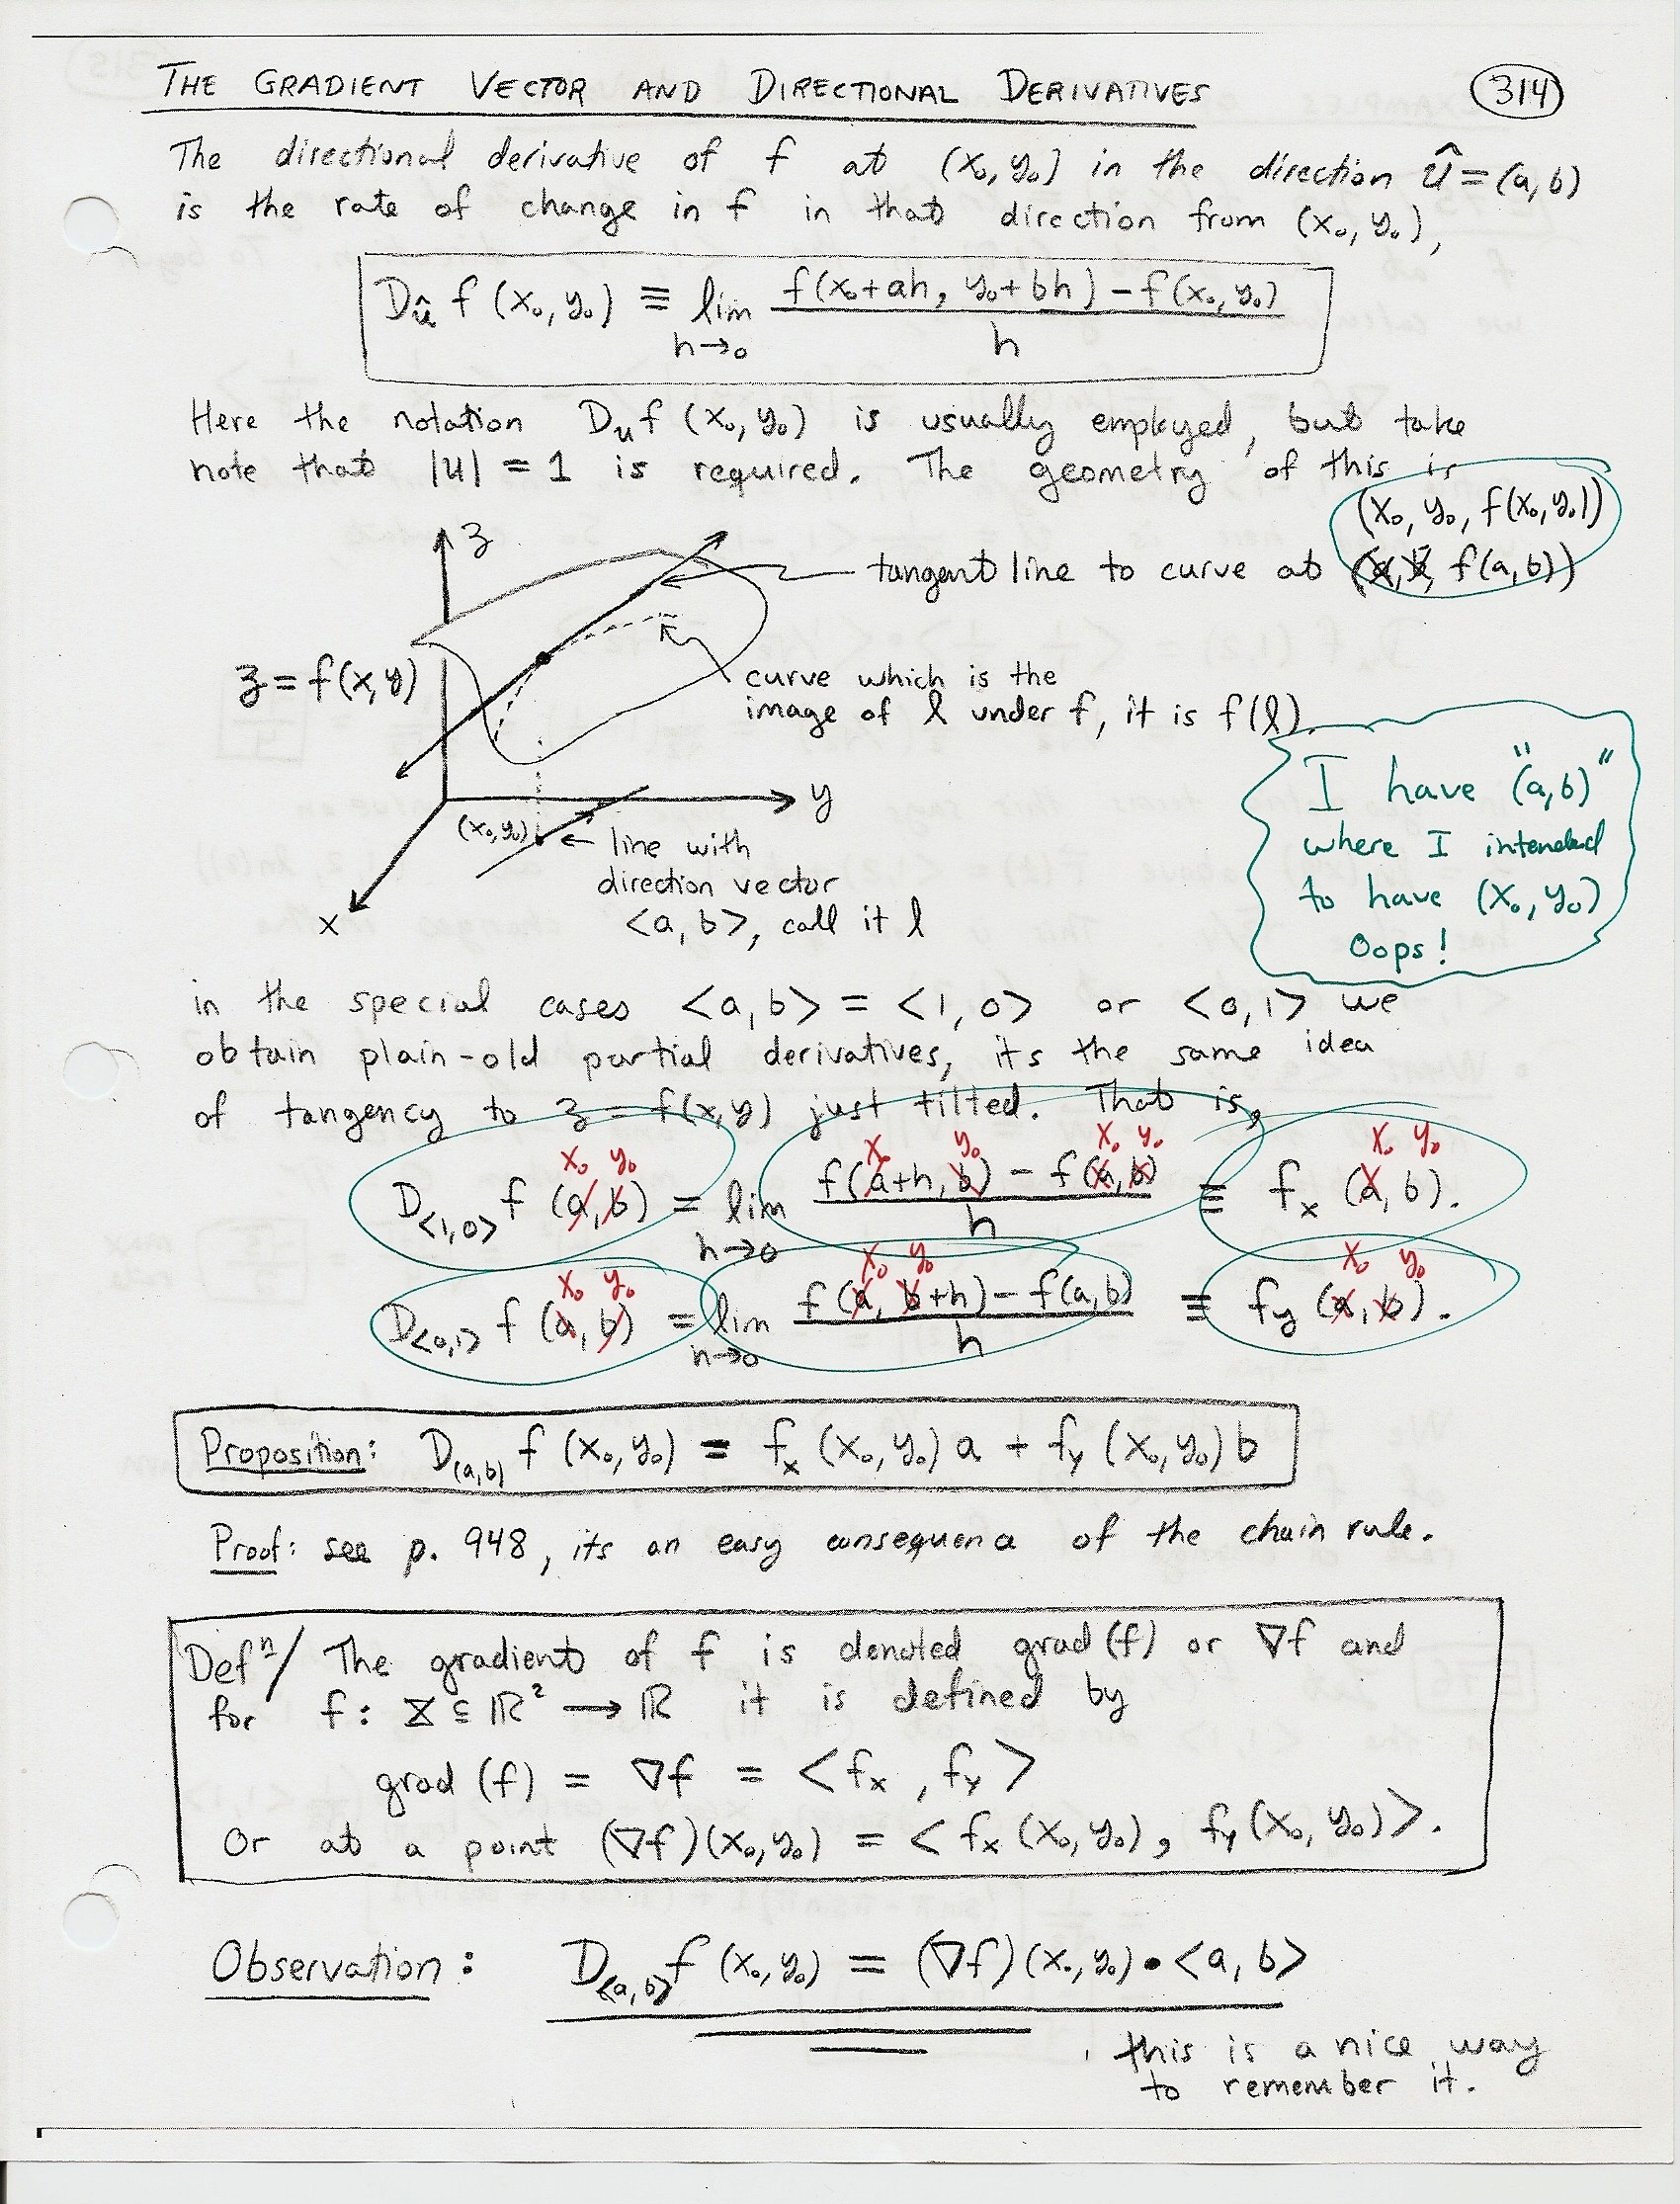 THE GRADIENT VECTOR AND DIRECTIONAL DERIVATIVES
314
The directional derivative of f at (x₀, y₀) in the direction û = (a, b)
is the rate of change in f in that direction from (x₀, y₀),
D_û f (x₀, y₀) ≡ lim h→0 f(x₀+ah, y₀+bh) - f(x₀, y₀) / h
Here the notation D_u f (x₀, y₀) is usually employed, but take
note that |u| = 1 is required. The geometry of this is
(x₀, y₀, f(x₀, y₀))
z
tangent line to curve at (a, b, f(a, b))
z = f(x, y)
curve which is the
image of l under f, it is f(l).
I have "(a, b)"
where I intended
to have (x₀, y₀)
Oops!
y
(x₀, y₀)
line with
direction vector
<a, b>, call it l
x
in the special cases <a, b> = <1, 0> or <0, 1> we
obtain plain-old partial derivatives, its the same idea
of tangency to z = f(x, y) just tilted. That is,
x₀ y₀ x₀ y₀ x₀ y₀ x₀ y₀
D_<1,0> f (a, b) = lim h→0 f(a+h, b) - f(a, b) / h ≡ f_x (a, b).
x₀ y₀ x₀ y₀ x₀ y₀
D_<0,1> f (a, b) = lim h→0 f(a, b+h) - f(a, b) / h ≡ f_y (a, b).
Proposition: D_(a,b) f (x₀, y₀) = f_x (x₀, y₀) a + f_y (x₀, y₀) b
Proof: see p. 948, its an easy consequence of the chain rule.
Defⁿ/ The gradient of f is denoted grad (f) or ∇f and
for f: ⊆ ℝ² → ℝ it is defined by
grad (f) = ∇f = <f_x, f_y>
Or at a point (∇f)(x₀, y₀) = <f_x (x₀, y₀), f_y (x₀, y₀)>.
Observation: D_<a,b> f (x₀, y₀) = (∇f)(x₀, y₀) • <a, b>
this is a nice way
to remember it.